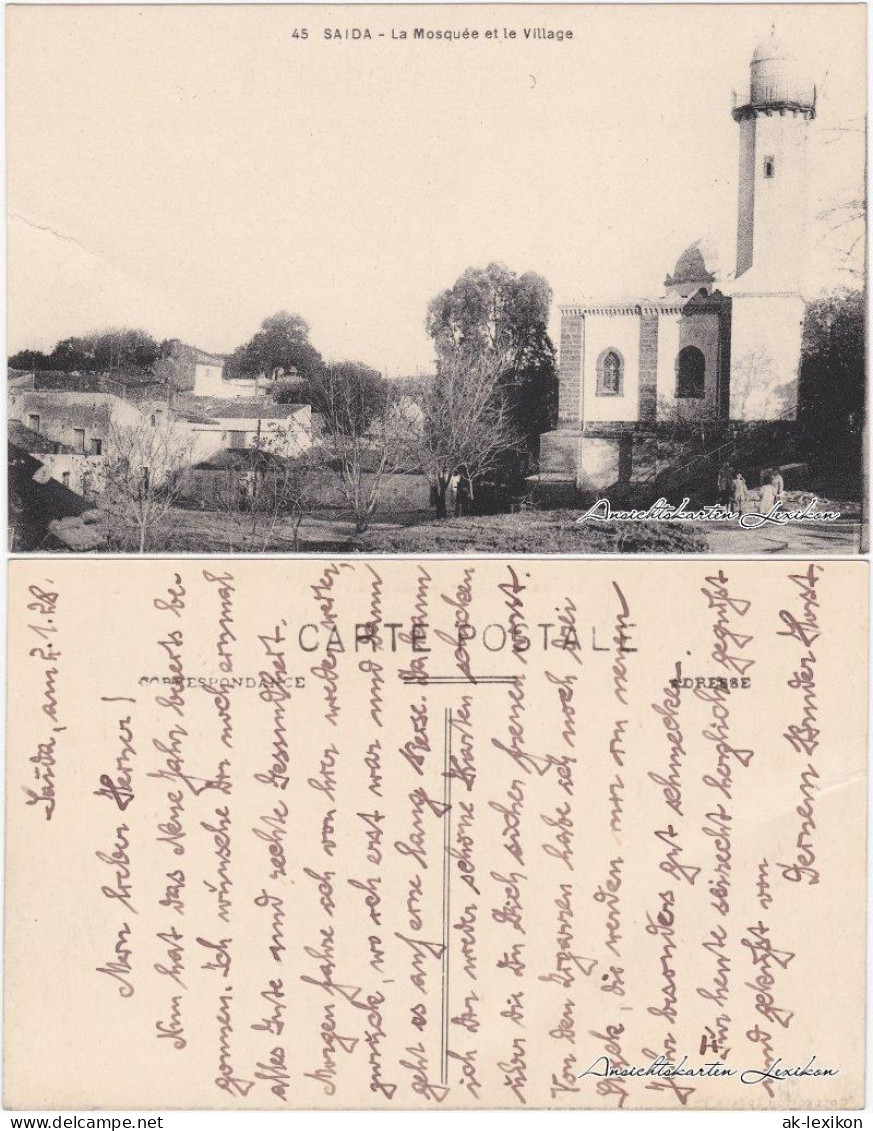 45 SAIDA - La Mosquée et le Village
Ansichtskarten Lexikon
CARTE POSTALE
CORRESPONDANCE
ADRESSE
Saida, am 7.1.28
Mein lieber Werner!
Nun hat das Neue Jahr bereits be-
gonnen. Ich wünsche Dir noch einmal
alles Gute und rechte Gesundheit.
Morgen fahre ich von hier wieder weiter,
zurück, wo ich erst war und dann
geht es auf eine lang Reise. Da kann
ich Dir wieder schöne Karten schicken
über die Du Dich sicher freuen wirst.
Von den Zigarren habe ich noch drei
Stück, die werden mir im neuen
Jahr besonders gut schmecken.
Für heute sei recht herzlich gegrüßt
und geküßt von
Deinem Bruder Horst,
Ansichtskarten Lexikon
Ansichtskarten-Lexikon
ak-lexikon.com